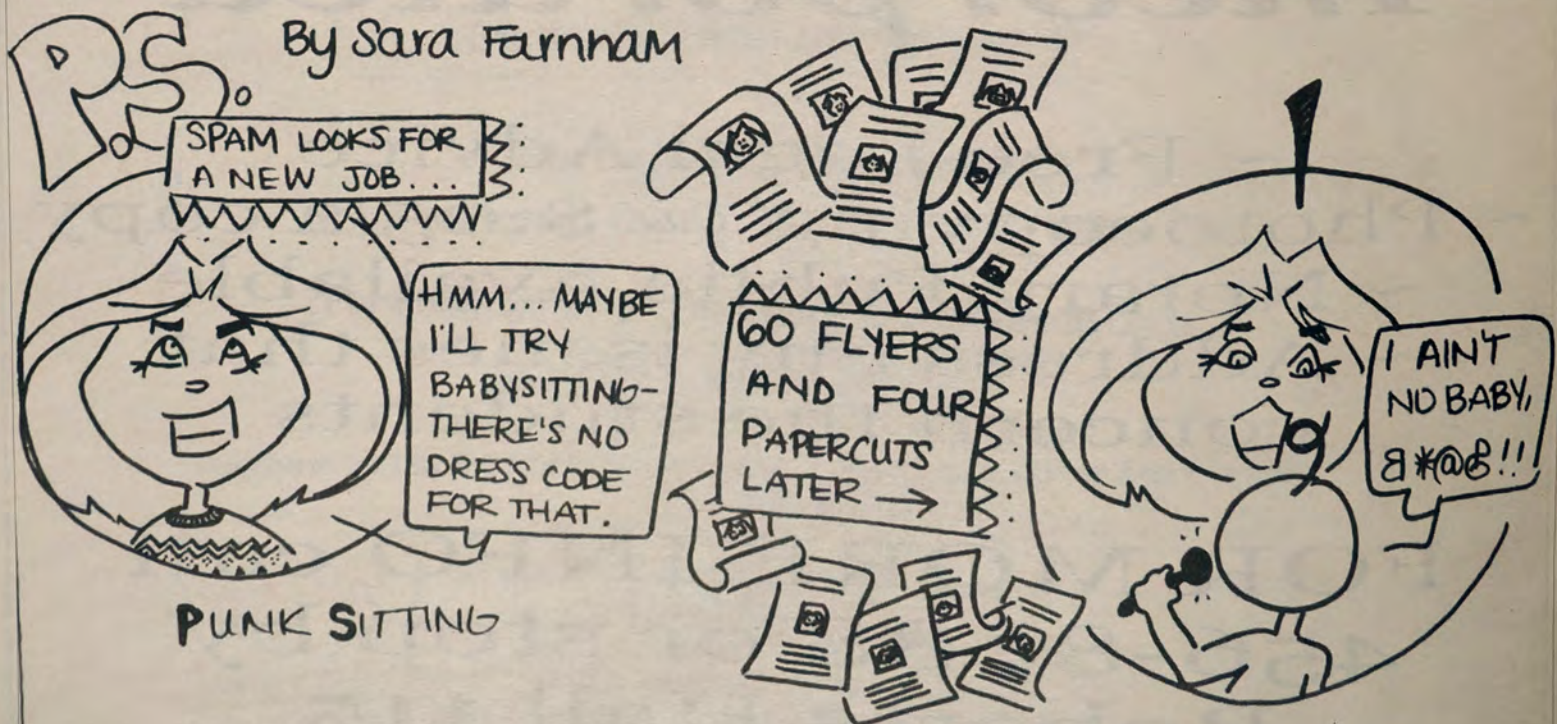 P.S.
By Sara Farnham
SPAM LOOKS FOR
A NEW JOB...
HMM... MAYBE
I'LL TRY
BABYSITTING-
THERE'S NO
DRESS CODE
FOR THAT.
PUNK SITTING
60 FLYERS
AND FOUR
PAPERCUTS
LATER →
I AIN'T
NO BABY,
&*@&!!